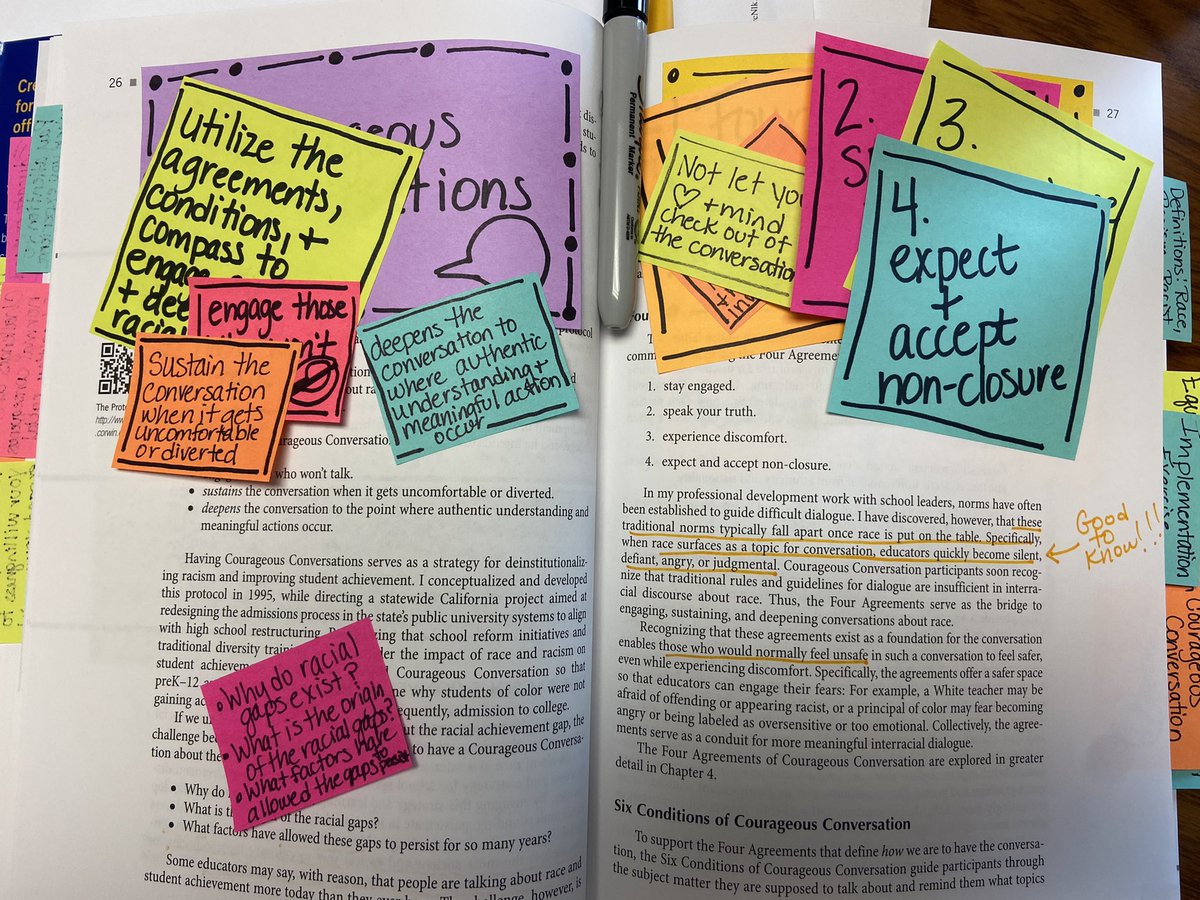 26
utilize the
agreements,
conditions, +
compass to
engage
racial
tions
engage those
Sustain the
conversation
when it gets
uncomfortable
or diverted
deepens the
conversation to
where authentic
understanding +
meaningful action
occur
The Prot
http://ww
.corwin.
who won't talk.
• sustains the conversation when it gets uncomfortable or diverted.
• deepens the conversation to the point where authentic understanding and
meaningful actions occur.
Having Courageous Conversations serves as a strategy for deinstitutionaliz-
ing racism and improving student achievement. I conceptualized and developed
this protocol in 1995, while directing a statewide California project aimed at
redesigning the admissions process in the state's public university systems to align
with high school restructuring. that school reform initiatives and
traditional diversity the impact of race and racism on
student Courageous Conversation so that
preK–12 why students of color were not
gaining admission to college.
If we the racial achievement gap, the
challenge to have a Courageous Conversa-
tion about the
• Why do racial
gaps exist?
• What is the origin
of the racial gaps?
• What factors have
allowed the gaps to persist
• Why do
• What is of the racial gaps?
• What factors have allowed these gaps to persist for so many years?
Some educators may say, with reason, that people are talking about race and
student achievement more today than they ever however, is
Permanent Marker
27
Not let you
♡ + mind
check out of
the conversation
2.
3.
4.
expect
+
accept
non-closure
the Four Agreements
1. stay engaged.
2. speak your truth.
3. experience discomfort.
4. expect and accept non-closure.
In my professional development work with school leaders, norms have often
been established to guide difficult dialogue. I have discovered, however, that these
traditional norms typically fall apart once race is put on the table. Specifically,
when race surfaces as a topic for conversation, educators quickly become silent,
defiant, angry, or judgmental. Courageous Conversation participants soon recog-
nize that traditional rules and guidelines for dialogue are insufficient in interra-
cial discourse about race. Thus, the Four Agreements serve as the bridge to
engaging, sustaining, and deepening conversations about race.
Good
to
Know!!!
Recognizing that these agreements exist as a foundation for the conversation
enables those who would normally feel unsafe in such a conversation to feel safer,
even while experiencing discomfort. Specifically, the agreements offer a safer space
so that educators can engage their fears: For example, a White teacher may be
afraid of offending or appearing racist, or a principal of color may fear becoming
angry or being labeled as oversensitive or too emotional. Collectively, the agree-
ments serve as a conduit for more meaningful interracial dialogue.
The Four Agreements of Courageous Conversation are explored in greater
detail in Chapter 4.
Six Conditions of Courageous Conversation
To support the Four Agreements that define how we are to have the conversa-
tion, the Six Conditions of Courageous Conversation guide participants through
the subject matter they are supposed to talk about and remind them what topics
Definitions: Race,
Implementation
Exercise
Courageous
Conversation